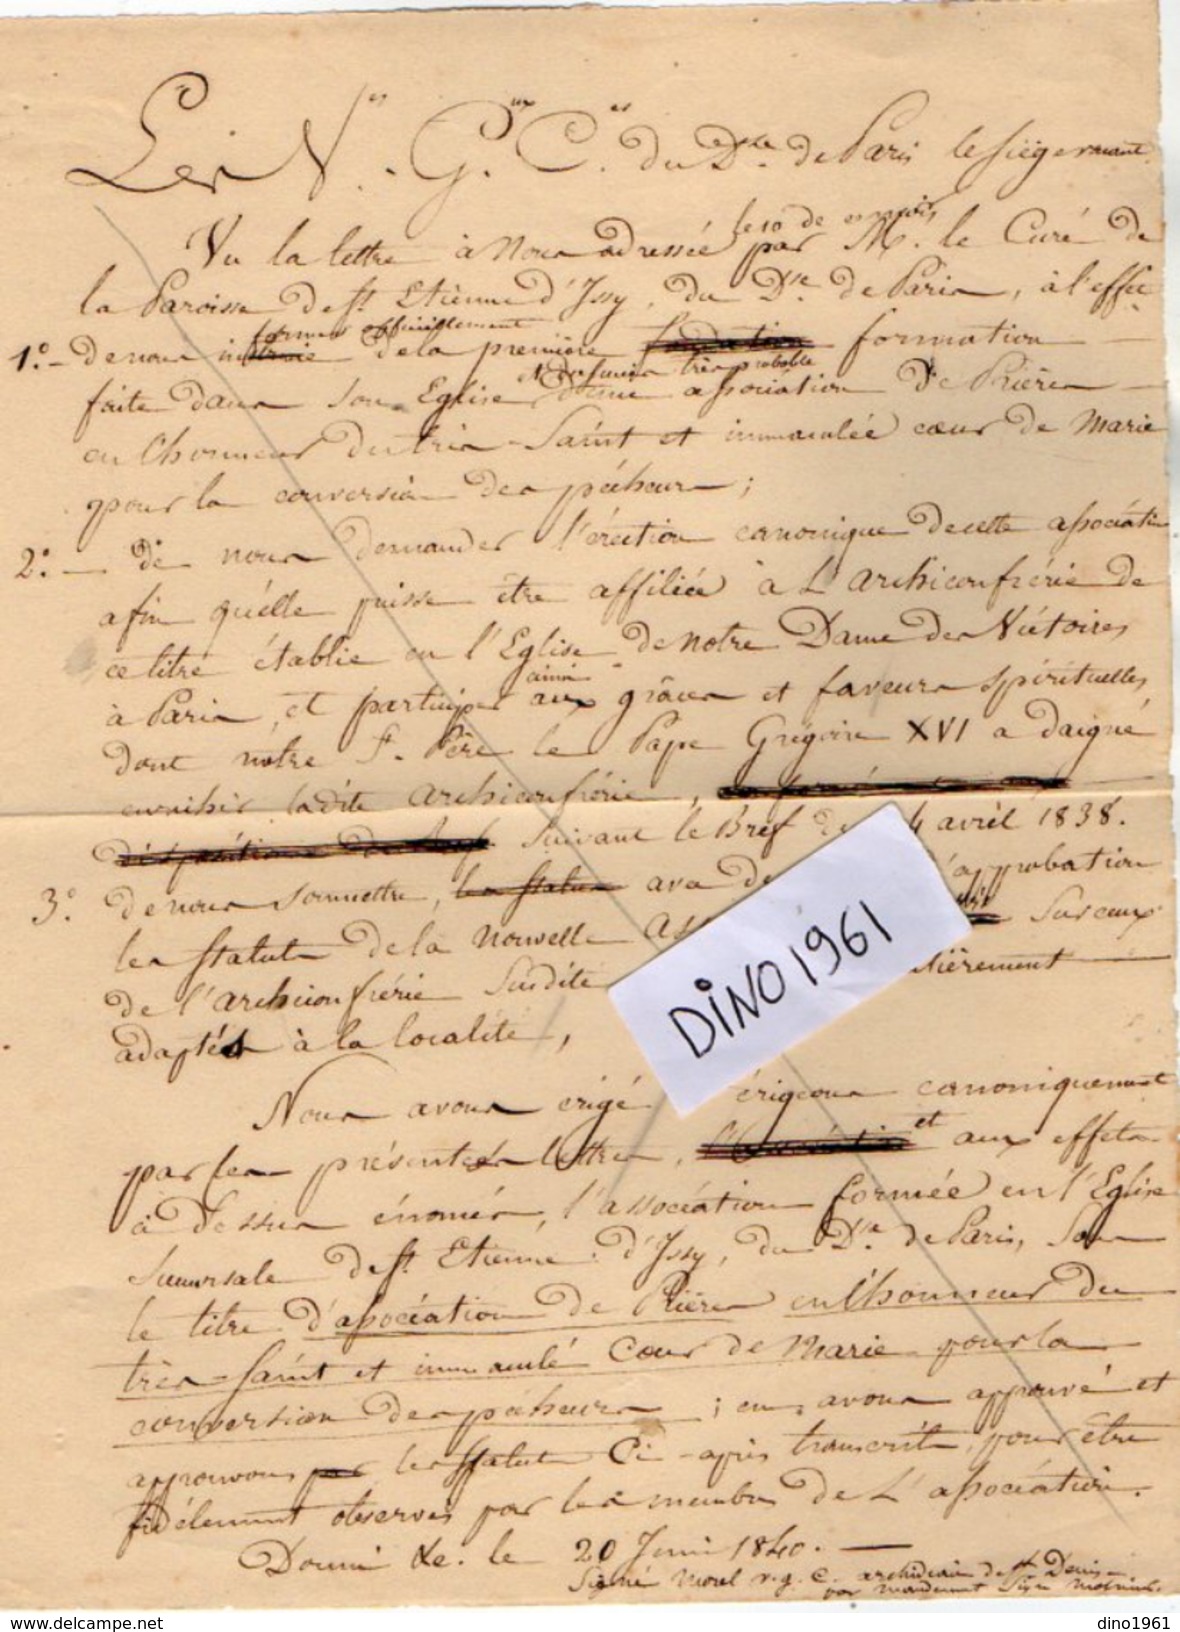 Les V.es G.ux C.es du D.se de Paris le siège vacant.
le 10 de ce mois
Vu la lettre à Nous adressée par M. le Curé de
la Paroisse de St. Etienne d'Issy, du D.se de Paris, à l'effet
former officiellement
1.° - de nous de la première formation
très probable
faite dans son Eglise d'une association de Prières
en l'honneur du très-Saint et immaculée cœur de Marie
pour la conversion des pécheurs ;
2.° - De nous demander l'érection canonique de cette association
afin qu'elle puisse être affiliée à L'archiconfrérie de
ce titre établie en l'Eglise de notre Dame des Victoires
ainsi
à Paris, et participer aux grâces et faveurs spirituelles
dont nôtre St. Père le Pape Grégoire XVI a daigné
enrichir ladite archiconfrérie,
dispositions du Bref suivant le Bref d 4 avril 1838.
3.° de nous soumettre, les statuts avec de d'approbation
les statuts de la nouvelle Ass sur ceux
de l'archiconfrérie susdite lièrement
adaptés à la localité,
Nous avons érigé érigeons canoniquement
par les présentes lettres, et aux effets
à dessus énomés, l'association formée en l'Eglise
succursale de St. Etienne d'Issy, du D.se de Paris, sous
le titre d'association de Prières en l'honneur du
très-saint et immaculé Cœur de Marie pour la
conversion des pécheurs ; en avons approuvé et
approuvons par les statuts Ci-après transcrits, pour être
fidèlement observés par les membres de L'association.
Donné &c. le 20 Juin 1840.
Signé Morel v. g. C. archidiacre de St. Denis
par mandement Signé
DINO1961
dino1961